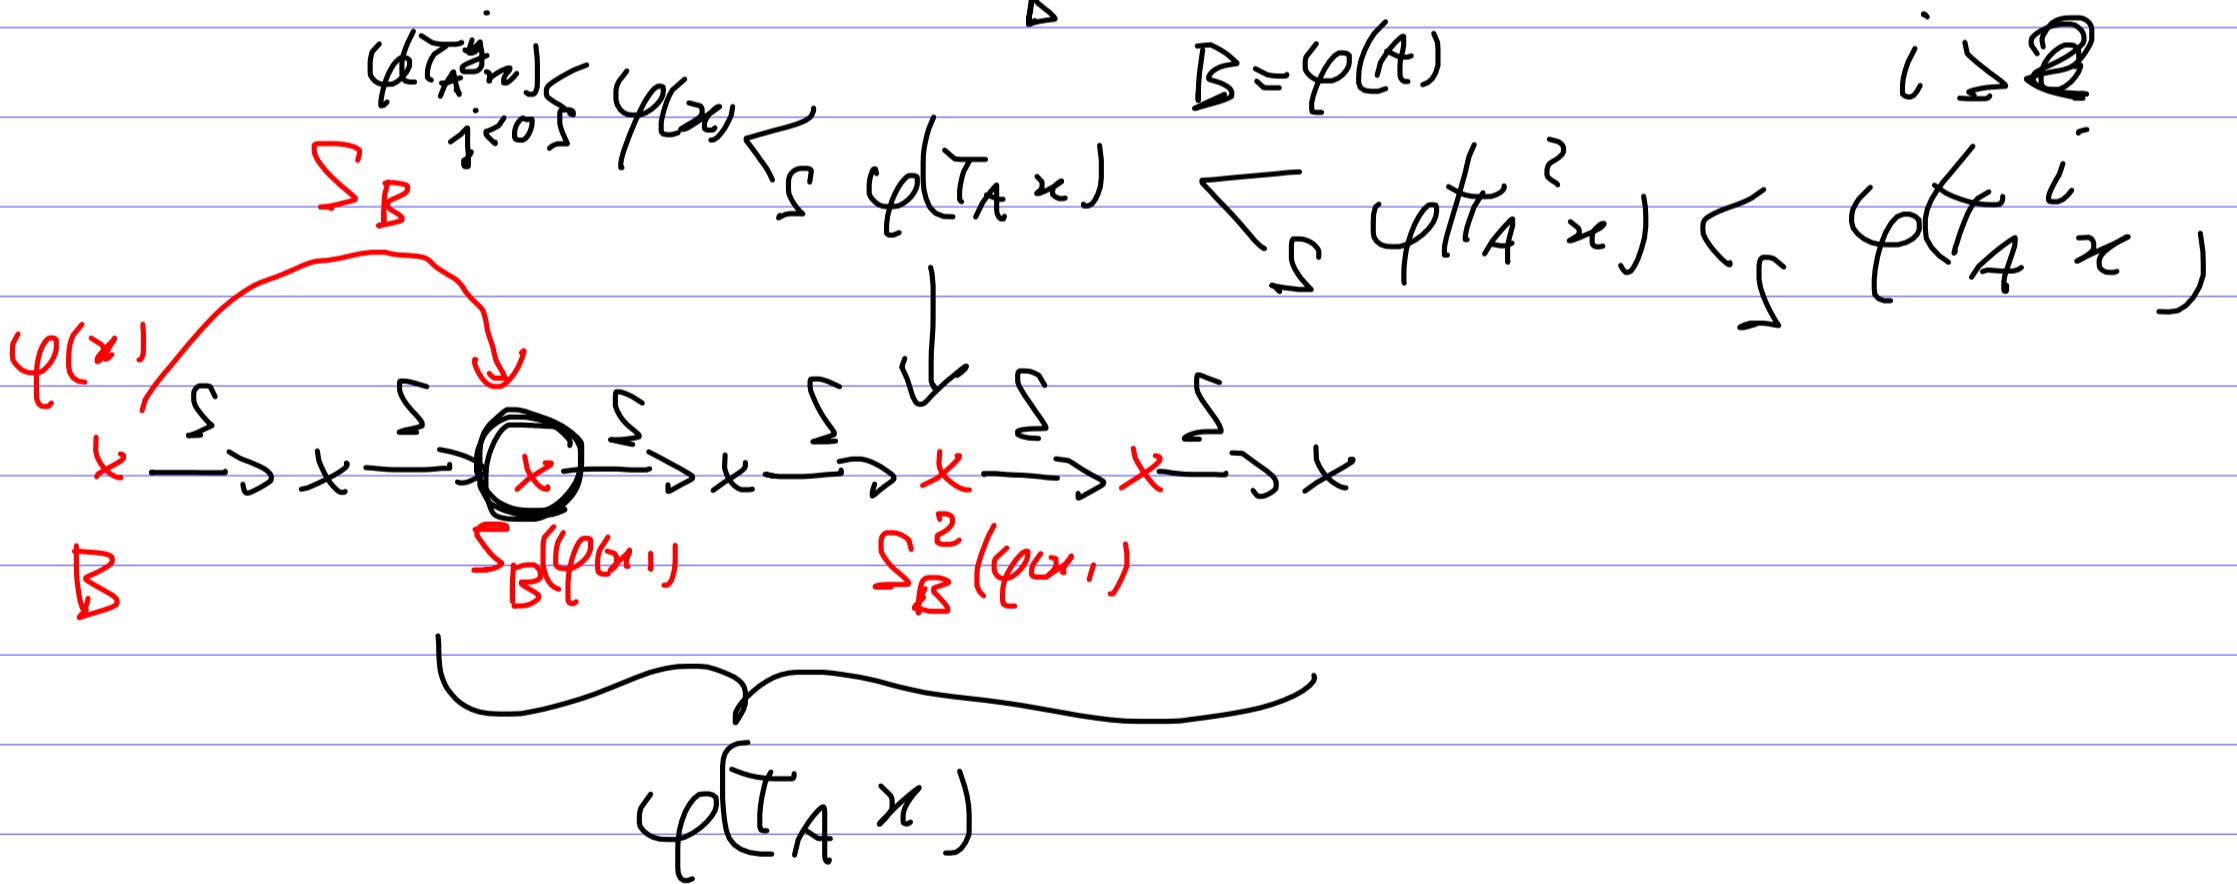 B = φ(A) i ≥ 2
φ(T_A^j x) <_S φ(x) <_S φ(T_A x) <_S φ(T_A^2 x) <_S φ(T_A^i x)
j<0
S_B
φ(x)
S S S S S S
x → x → x → x → x → x → x
B S_B(φ(x)) S_B^2(φ(x))
φ(T_A x)